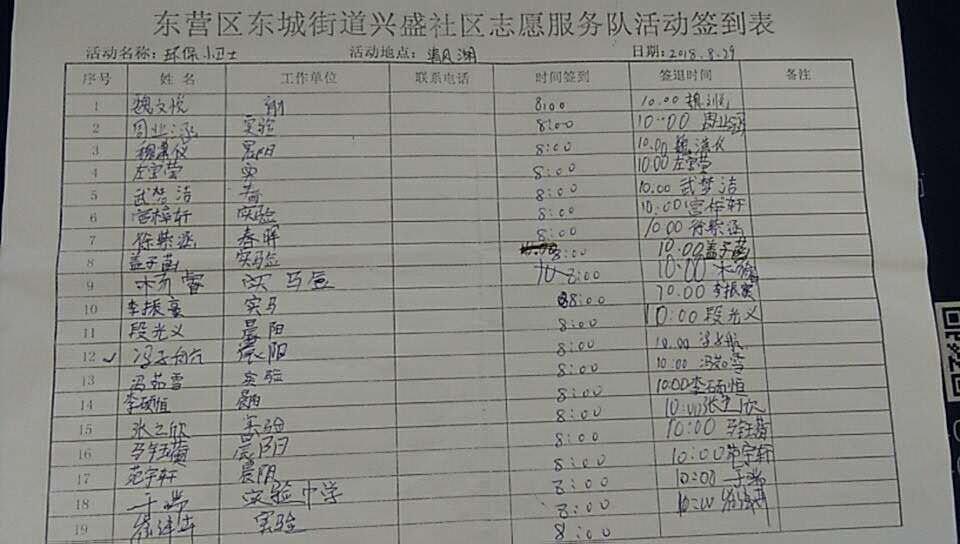 东营区东城街道兴盛社区志愿服务队活动签到表
活动名称：环保小卫士 活动地点：清风湖 日期：2018.8.29
序号 姓名 工作单位 联系电话 时间签到 签退时间 备注
1 魏文悦 8:00 10:00 魏文悦
2 周业涵 实验 8:00 10:00 周业涵
3 晨阳 8:00 10.00
4 左宝莹 实 8:00 10:00 左宝莹
5 武梦洁 8:00 10.00 武梦洁
6 宫梓轩 实验 8:00 10:00 宫梓轩
7 徐紫涵 春晖 8:00 10:00 徐紫涵
8 盖子菡 实验 8:00 10:00 盖子菡
9 8:00 10:00
10 李振 8:00 10.00 李振
11 段光义 晨阳 8:00 10:00 段光义
12 冯子航 晨阳 8:00 10:00 冯子航
13 冯茹雪 实验 8:00 10:00 冯茹雪
14 李硕恒 8:00 10:00 李硕恒
15 张之欣 实验 8:00 10:00 张之欣
16 马钰菡 晨阳 8:00 10:00 马钰菡
17 范宇轩 晨阳 8:00 10:00 范宇轩
18 于 实验中学 8:00 10:00 于
19 实验 8:00 10:00